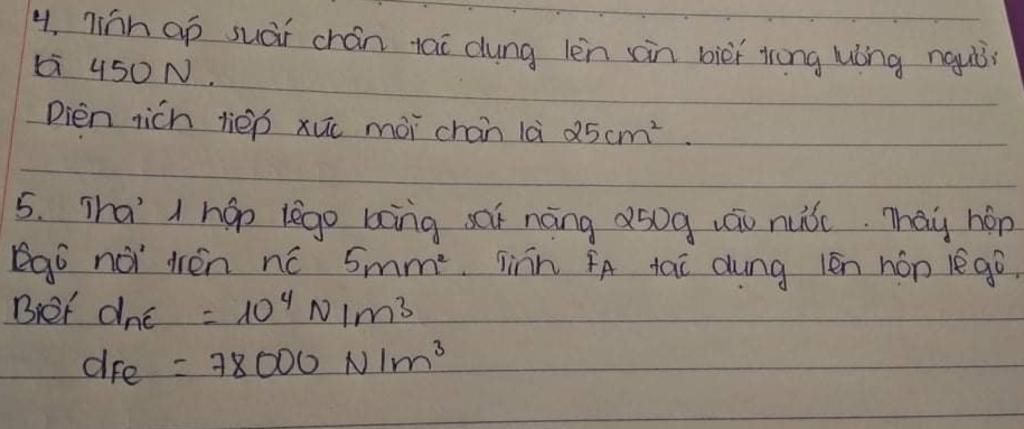 4. Tính áp suất chân tác dụng lên sàn biết trọng lượng người
là 450 N.
Diện tích tiếp xúc mỗi chân là 25cm².
5. Thả 1 hộp lêgo bằng sắt nặng 250g vào nước. Thấy hộp
lêgô nổi trên nc 5mm². Tính FA tác dụng lên hộp lêgô.
Biết dnc = 10⁴ N/m³
dFe = 78000 N/m³